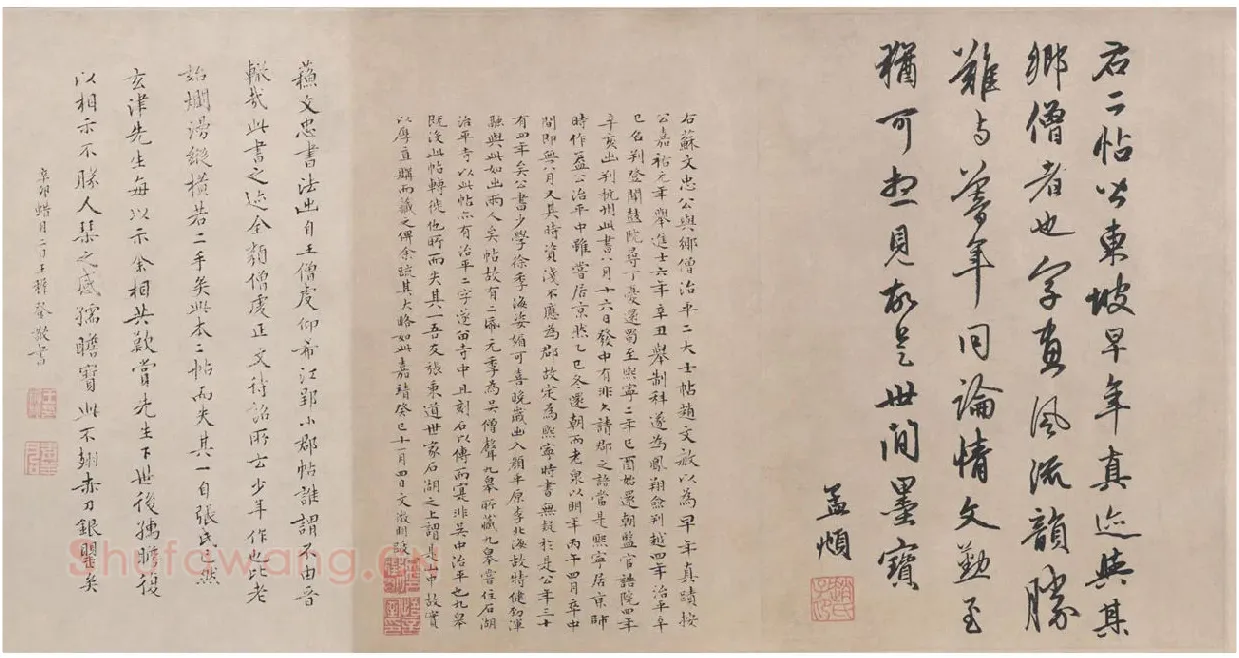 右二帖皆東坡早年真迹與其
鄉僧者也字畫風流韻勝
難与暮年同論情文勤至
猶可想見故是世間墨寶
孟頫
右蘇文忠公與鄉僧治平二大士帖趙文敏以為早年真蹟按
公嘉祐元年舉進士六年辛丑舉制科遂為鳳翔僉判越四年治平乙
巳召判登聞鼓院尋丁憂還蜀至熙寧二年己酉始還朝監官誥院四年
辛亥出判杭州此書八月十六日發中有非久請郡之語當是熙寧居京師
時作蓋公治平中雖嘗居京然乙巳冬還朝而老泉以明年丙午四月卒中
間即無八月又其時資淺不應為郡故定為熙寧時書無疑於是公年三十
有四年矣公書少學徐季海姿媚可喜晚歲出入顏平原李北海故特健勁渾
融與此如出兩人矣帖故有二元季為吳僧聲九皋所藏九皋嘗住石湖
治平寺以此帖亦有治平二字遂留寺中且刻石以傳而寔非吳中治平也九皋
既沒此帖轉徙他所而失其一吾友張東道世家石湖之上謂是山中故實
以厚直購而藏之俾余疏其大略如此嘉靖癸巳十一月四日文徵明跋
蘓文忠書法出自王僧虔仰希江郢小郡帖誰謂不由晉
轍哉此書之迹全類僧虔正文待詔所云少年作也比老
始爛漫縱橫若二手矣此本二帖而失其一自張氏之燕
玄津先生每以示余相共歎賞先生下世後孺瞻復
以相示不勝人琴之感孺瞻寶此不翅赤刀銀甖矣
辛卯蜡月二日王穉登敬書
Shufawang.cn